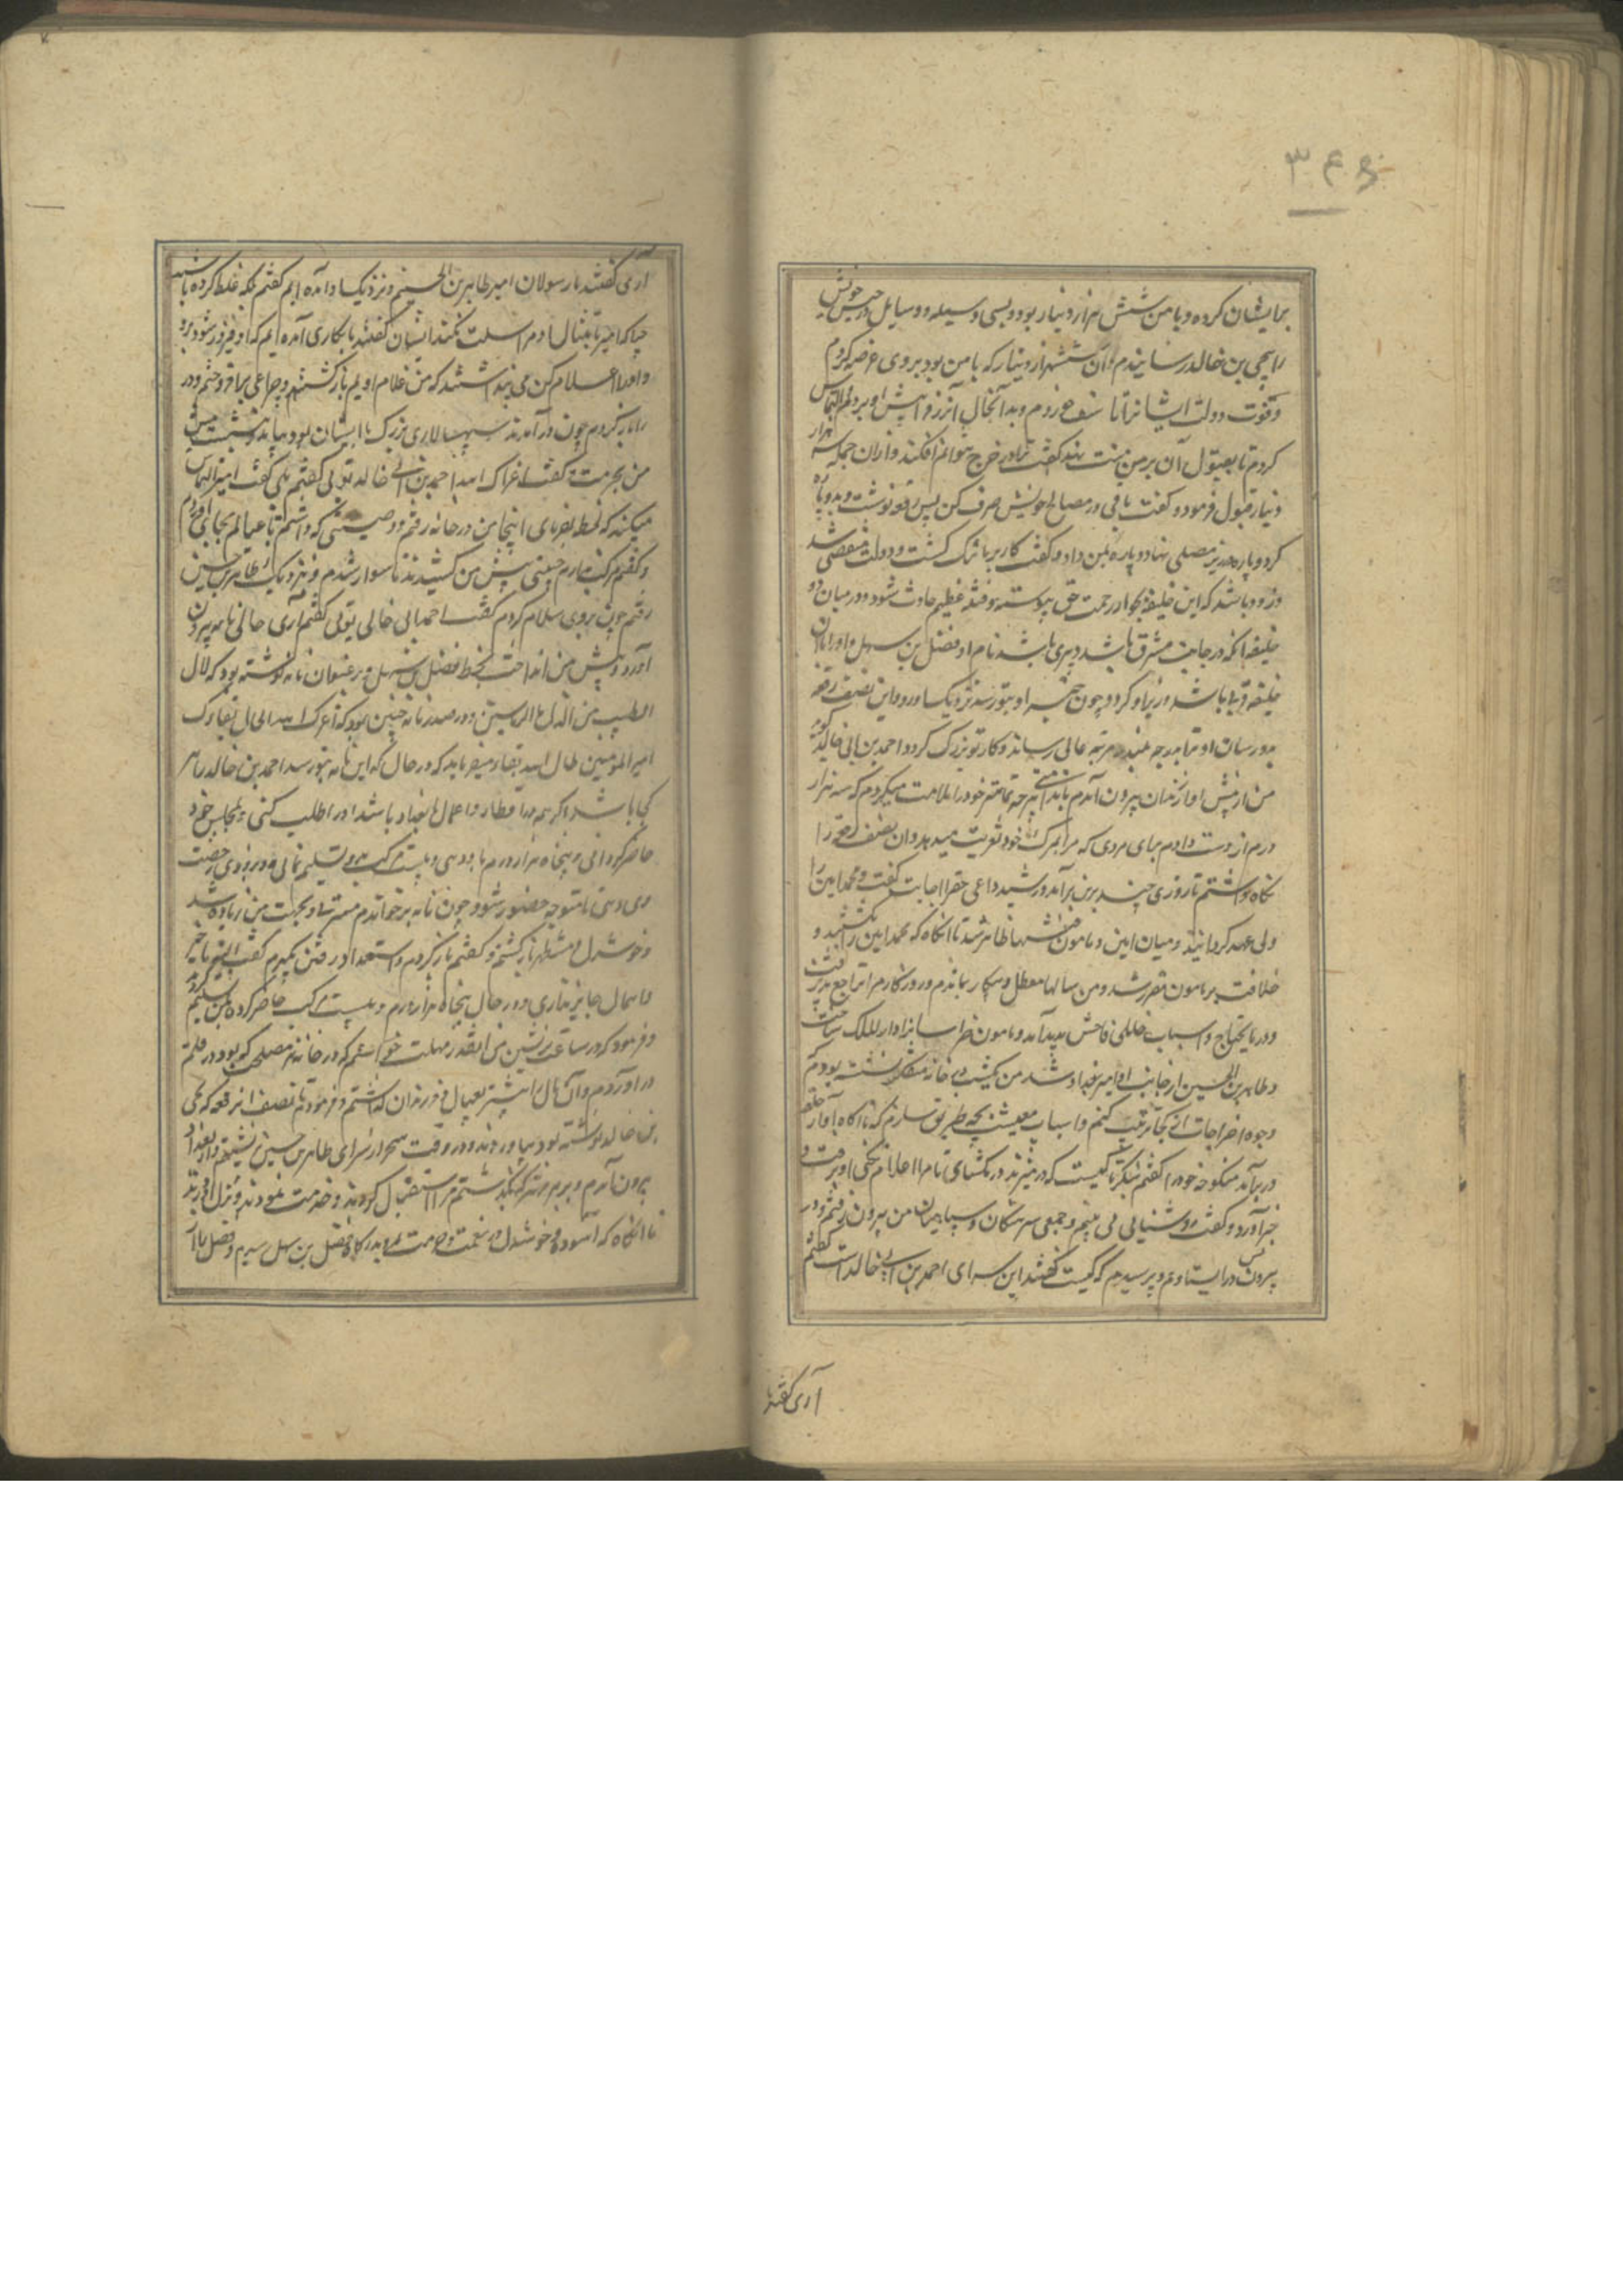 ۳۴۵
برایشان کرده و با من شش هزار دینار بود و بسی وسیله و وسایل در حبس خویش
را بیحیی بن خالد رسانیدم و آن ششهزار دینار که با من بود بروی عرضه کردم
و قوت دولت ایشانرا تأسف خوردم و بدانحال آنزر و پیش او بردم و التماس
کردم تا بقبول آن بر من منت نهد گفت ترا در خرج نتوانم افکند و از آن جمله سه هزار
دینار قبول فرمود و گفت باقی در مصالح خویش صرف کن پس رقعه نوشت و بدو پاره
کرد و پاره در زیر مصلی نهاد و پاره بمن داد و گفت کار بر ما تنگ گشت و دولت منقضی شد
و زود باشد که این خلیفه بجوار رحمت حق پیوسته و فتنه عظیم حادث شود و در میان دو
خلیفه آنکه در جانب مشرق باشد دبیری باشد نام او فضل بن سهل و او را با آن
خلیفه باشد وزیر او گردد چون خبر او بتو رسد نزدیک او رو و این نصف رقعه
بدو رسان او ترا بدرجه بلند و مرتبه عالی رساند و کار تو بزرگ گردد احمد بن ابی خالد گوید
من از پیش او از زندان بیرون آمدم با ندامتی هرچه تمامتر خود را ملامت میکردم که سه هزار
درم از دست دادم برای مردی که مرا بمرگ خود تعزیت میدهد و آن نصف رقعه را
نگاه داشتم تا روزی چند برین برآمد و رشید داعی حق را اجابت گفت و محمد امین را
ولی عهد گردانید و میان امین و مامون فتنها ظاهر شد تا آنگاه که محمد امین را بکشتند و
خلافت بر مامون مقرر شد و من سالها معطل و بیکار بماندم و روزگارم تراجع پذیرفت
و در مایحتاج و اسباب خللی فاحش پدید آمد و مامون خراسانرا دار الملک ساخت
و طاهر بن الحسین از جانب او امیر بغداد شد من یک شب در خانه متفکر نشسته بودم که
وجوه اخراجات از کجا ترتیب کنم و اسباب معیشت بچه طریق سازم که ناگاه آواز حلقه
در برآمد منکوحه خود را گفتم بنگر تا کیست که در میزند در مگشای تا مرا اعلام نکنی او برفت و
خبر آورد و گفت روشنیایی می بینم و جمعی سرهنگان و سپاهیان من بیرون رفتم و در
بیرون در ایستادم و پرسیدم که کیست گفتند این سرای احمد بن ابی خالد است گفتم
آری گفتند ما
آری گفتند ما رسولان امیر طاهر بن الحسینیم و نزدیک او آمده ایم گفتم مگر غلط کرده باشید
چرا که امیر با مثال او مراسلت نکند ایشان گفتند ما بکاری آمده ایم که او فیروز شود برو
و او را اعلام کن می پنداشتند که من غلام اویم باز گشتم و چراغی برافروختم و در
را باز کردم چون درآمدند سپهسالاری بزرگ با ایشان بود بیامد و بنشست پیش
من بحرمت و گفت اعزک الله احمد بن ابی خالد تویی گفتم بلی گفت امیر التماس
میکند که لحظه بفرمای اینجا من در خانه رفتم و وصیتی که داشتم با عیالم بجای آوردم
و گفتم مرکب ندارم جنیبتی پیش من کشیدند تا سوار شدم و نزدیک طاهر بن حسین
رفتم چون بروی سلام کردم گفت احمد ابی خالد تویی گفتم آری حالی نامه بیرون
آورد و پیش من انداخت بخط فضل بن سهل و بر عنوان نامه نوشته بود که
و در صدر نامه چنین بود که اعزک الله اطال بقاءک
امیر المومنین اطال الله بقاءه میفرماید که در حال که این نامه بتو رسد احمد بن خالد را هر
کجا باشد اگر همه در اقطار و اعمال بغداد باشد او را طلب کنی و بمجلس خود
حاضر گردانی و پنجاه هزار درم بدو دهی و بیست مرکب بدو تسلیم نمائی و بزودی رخصت
دهی تا متوجه حضور شود چون نامه برخواندم مسرت و بهجت من زیاده شد
و خوشدل و مستظهر باز گشتم و گفتم باز گردم و استعداد رفتن بگیرم گفت البته تاخیر
و اهمال جایز نداری و در حال پنجاه هزار درم و بیست مرکب حاضر کرده بمن تسلیم کرد
و فرمود که در ساعت برنشین من اینقدر مهلت خواستم که در خانه هر مصلحت که بود در قلم
در آوردم و آن مال را بیشتر بعیال و فرزندان گذاشتم و فرمود تا نصف آنرقعه که یحیی
بن خالد نوشته بود بیاوردند و در وقت سحر از سرای طاهر بن حسین نشستم و از بغداد
بیرون آمدم و بهر منزل که بگذشتم مرا استقبال کردند و خدمت نمودند و نزل آوردند
تا آنگاه که آسوده و خوشدل در نعمت و حرمت بدرگاه فضل بن سهل رسیدم و فضل بار